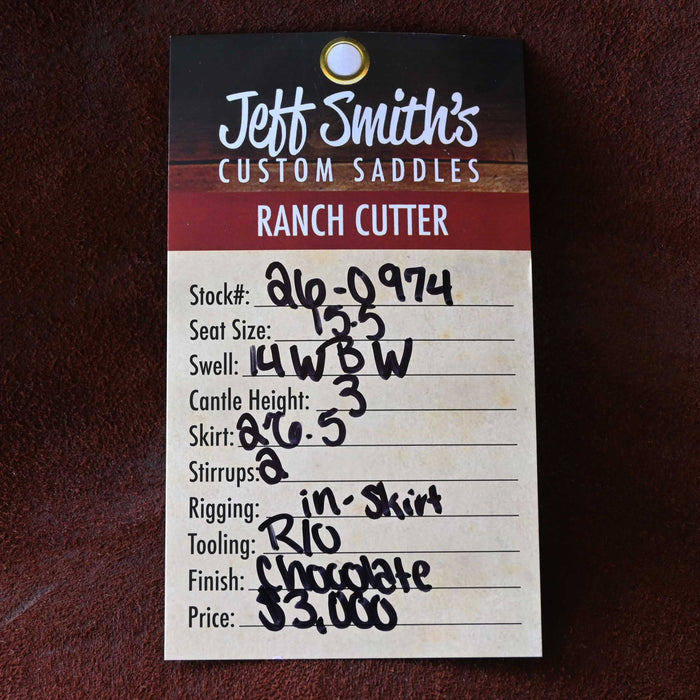 Jeff Smith's
CUSTOM SADDLES
RANCH CUTTER
Stock#: 26-0974
Seat Size: 15.5
Swell: 14 W B W
Cantle Height: 3
Skirt: 26.5
Stirrups: 2
Rigging: in-skirt
Tooling: R/O
Finish: Chocolate
Price: $3,000